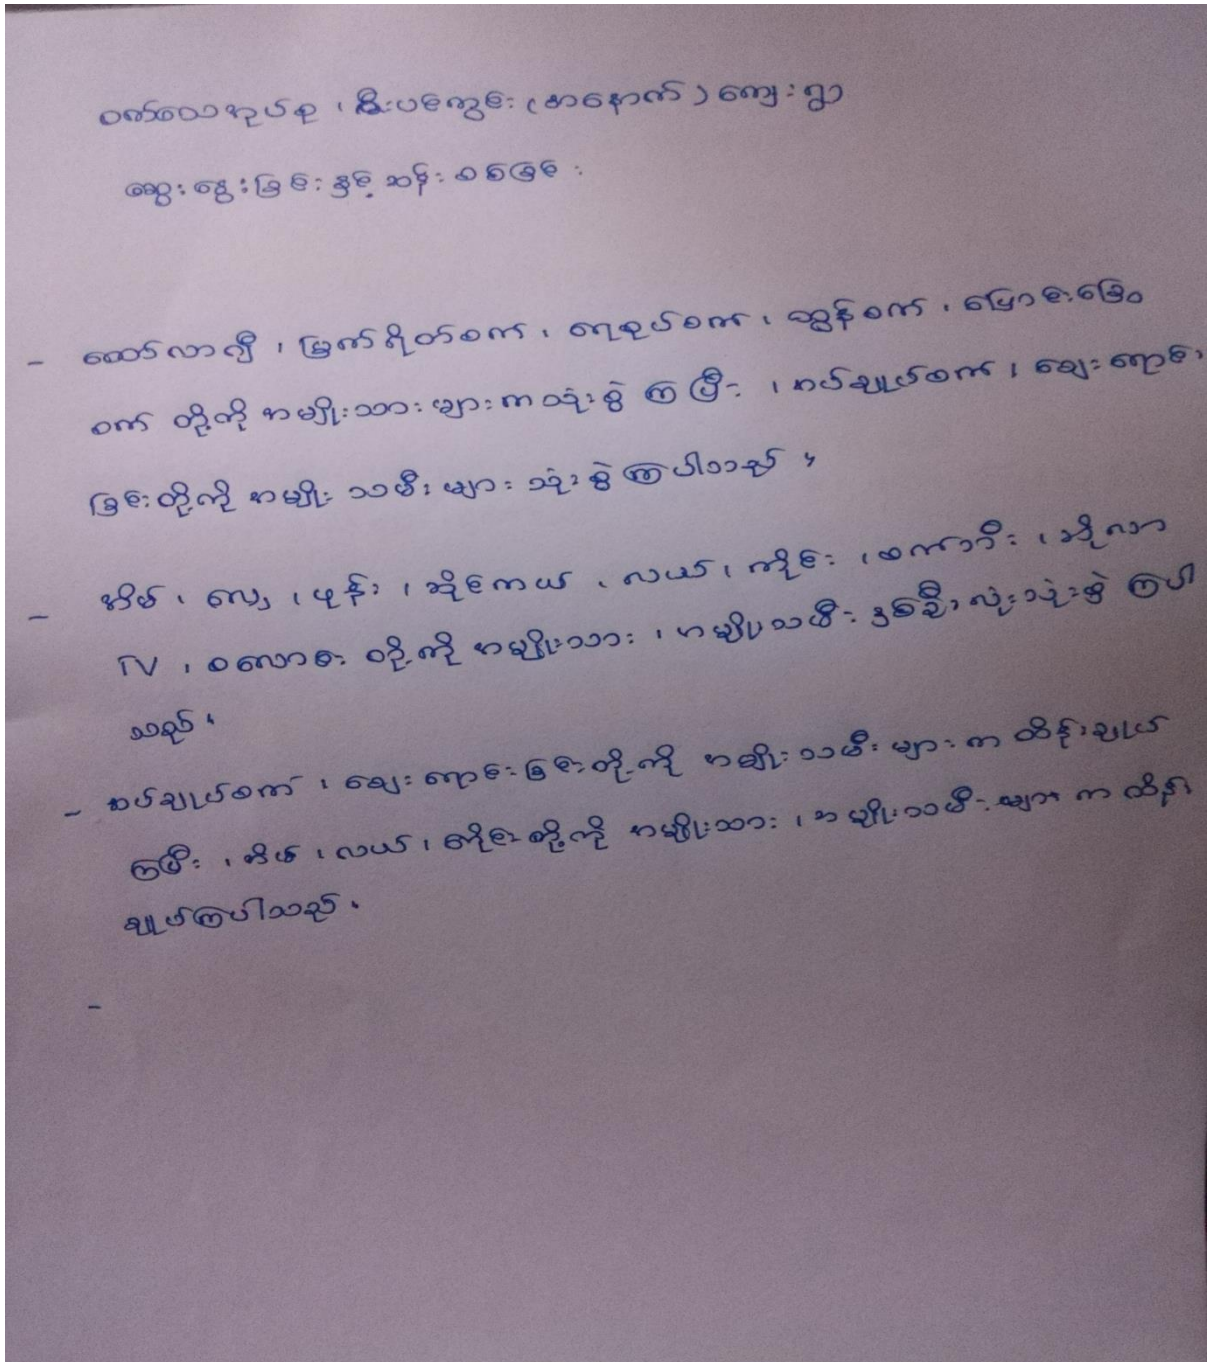 ဝက်လေအုပ်စု ၊ နီးပင်ကွင်း (အနောက်) ကျေးရွာ
ဆွေးနွေးခြင်းနှင့် ဆန်းစစ်ခြင်း
- ထော်လာဂျီ ၊ မြက်ရိတ်စက် ၊ ရေစုပ်စက် ၊ ထွန်စက် ၊ ပြောင်းခြွေ
စက် တို့ကို အမျိုးသားများက သုံးစွဲကြပြီး ၊ အပ်ချုပ်စက် ၊ ဈေးရောင်း
ခြင်းတို့ကို အမျိုးသမီးများ သုံးစွဲကြပါသည် ။
- အိမ် ၊ လှေ ၊ ဖုန်း ၊ ဆိုင်ကယ် ၊ လယ် ၊ ကိုင်း ၊ စက်ဘီး ၊ ဆိုလာ
TV ၊ စလောင်း တို့ကို အမျိုးသား ၊ အမျိုးသမီး နှစ်ဦးလုံးသုံးစွဲကြပါ
သည် ။
- အပ်ချုပ်စက် ၊ ဈေးရောင်းခြင်းတို့ကို အမျိုးသမီးများက ထိန်းချုပ်
ကြပြီး ၊ အိမ် ၊ လယ် ၊ ကိုင်းတို့ကို အမျိုးသား ၊ အမျိုးသမီးများက ထိန်း
ချုပ်ကြပါသည် ။
-